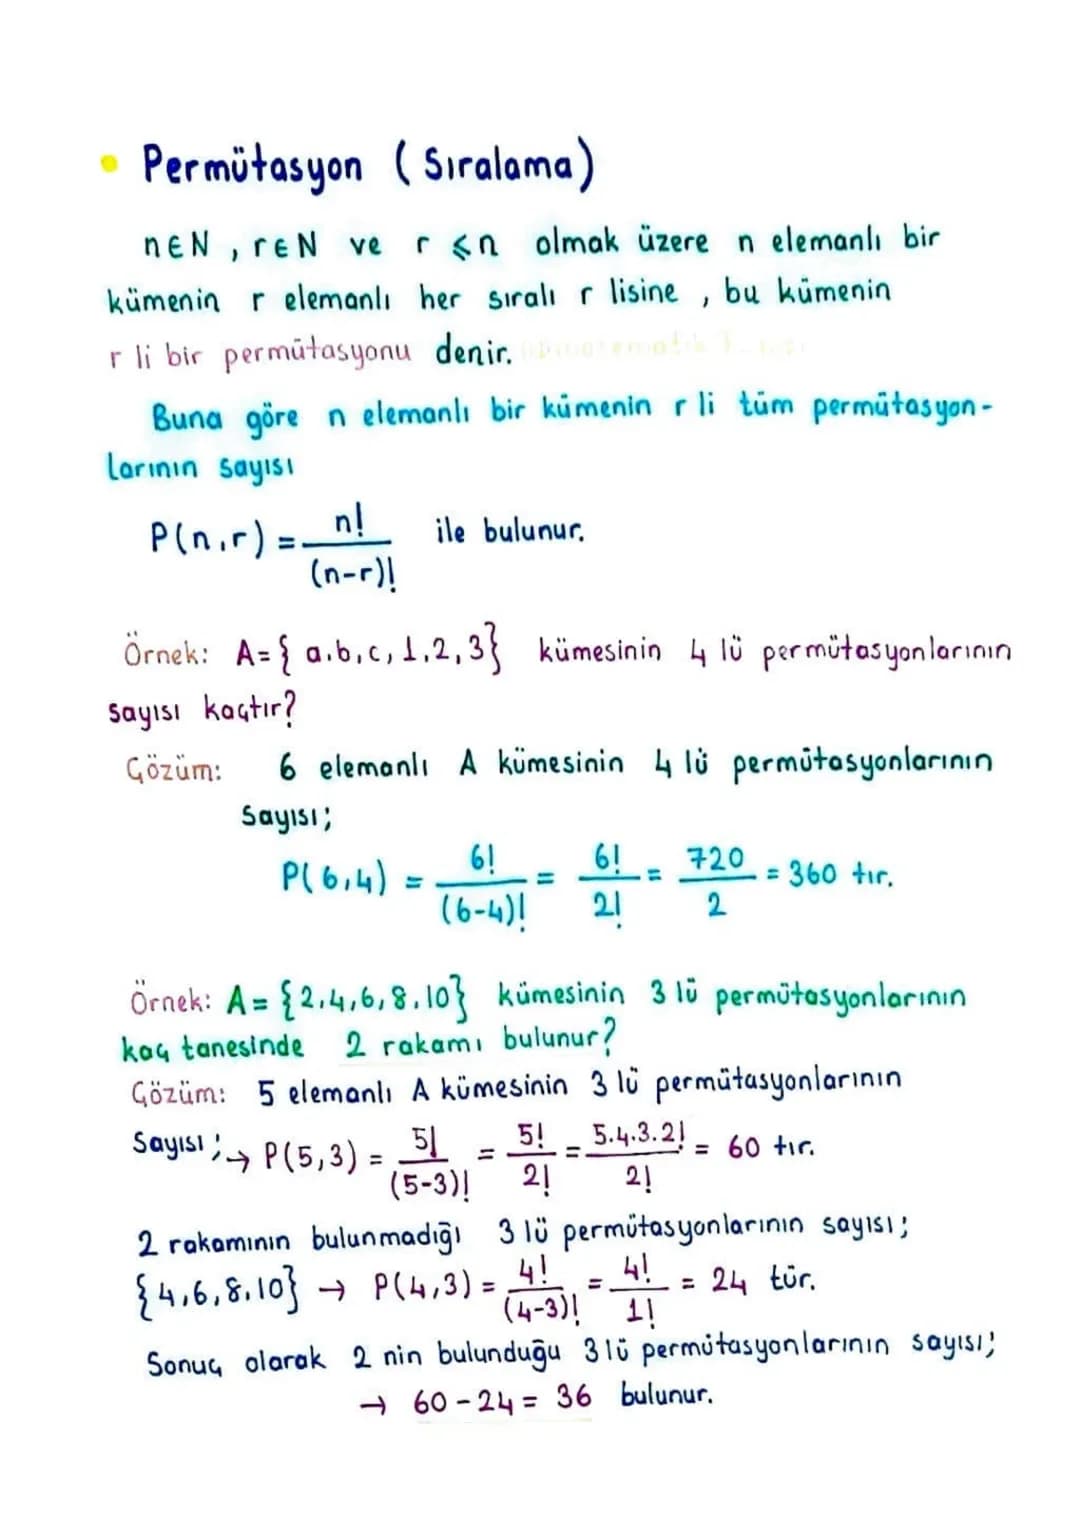 • Permütasyon (Sıralama)
n∈N, r∈N ve r ⩽ n olmak üzere n elemanlı bir
kümenin r elemanlı her sıralı r lisine, bu kümenin
r li bir permütasyonu denir.
Buna göre n elemanlı bir kümenin r li tüm permütasyon-
larının sayısı
P(n,r) = n! / (n-r)! ile bulunur.
Örnek: A={a,b,c,1,2,3} kümesinin 4 lü permütasyonlarının
sayısı kaçtır?
Çözüm: 6 elemanlı A kümesinin 4 lü permütasyonlarının
Sayısı;
P(6,4) = 6! / (6-4)! = 6! / 2! = 720 / 2 = 360 tır.
Örnek: A={2,4,6,8,10} kümesinin 3 lü permütasyonlarının
kaç tanesinde 2 rakamı bulunur?
Çözüm: 5 elemanlı A kümesinin 3 lü permütasyonlarının
Sayısı; → P(5,3) = 5! / (5-3)! = 5! / 2! = 5.4.3.2! / 2! = 60 tır.
2 rakamının bulunmadığı 3 lü permütasyonlarının sayısı;
{4,6,8,10} → P(4,3) = 4! / (4-3)! = 4! / 1! = 24 tür.
Sonuç olarak 2 nin bulunduğu 3 lü permütasyonlarının sayısı;
→ 60-24 = 36 bulunur.